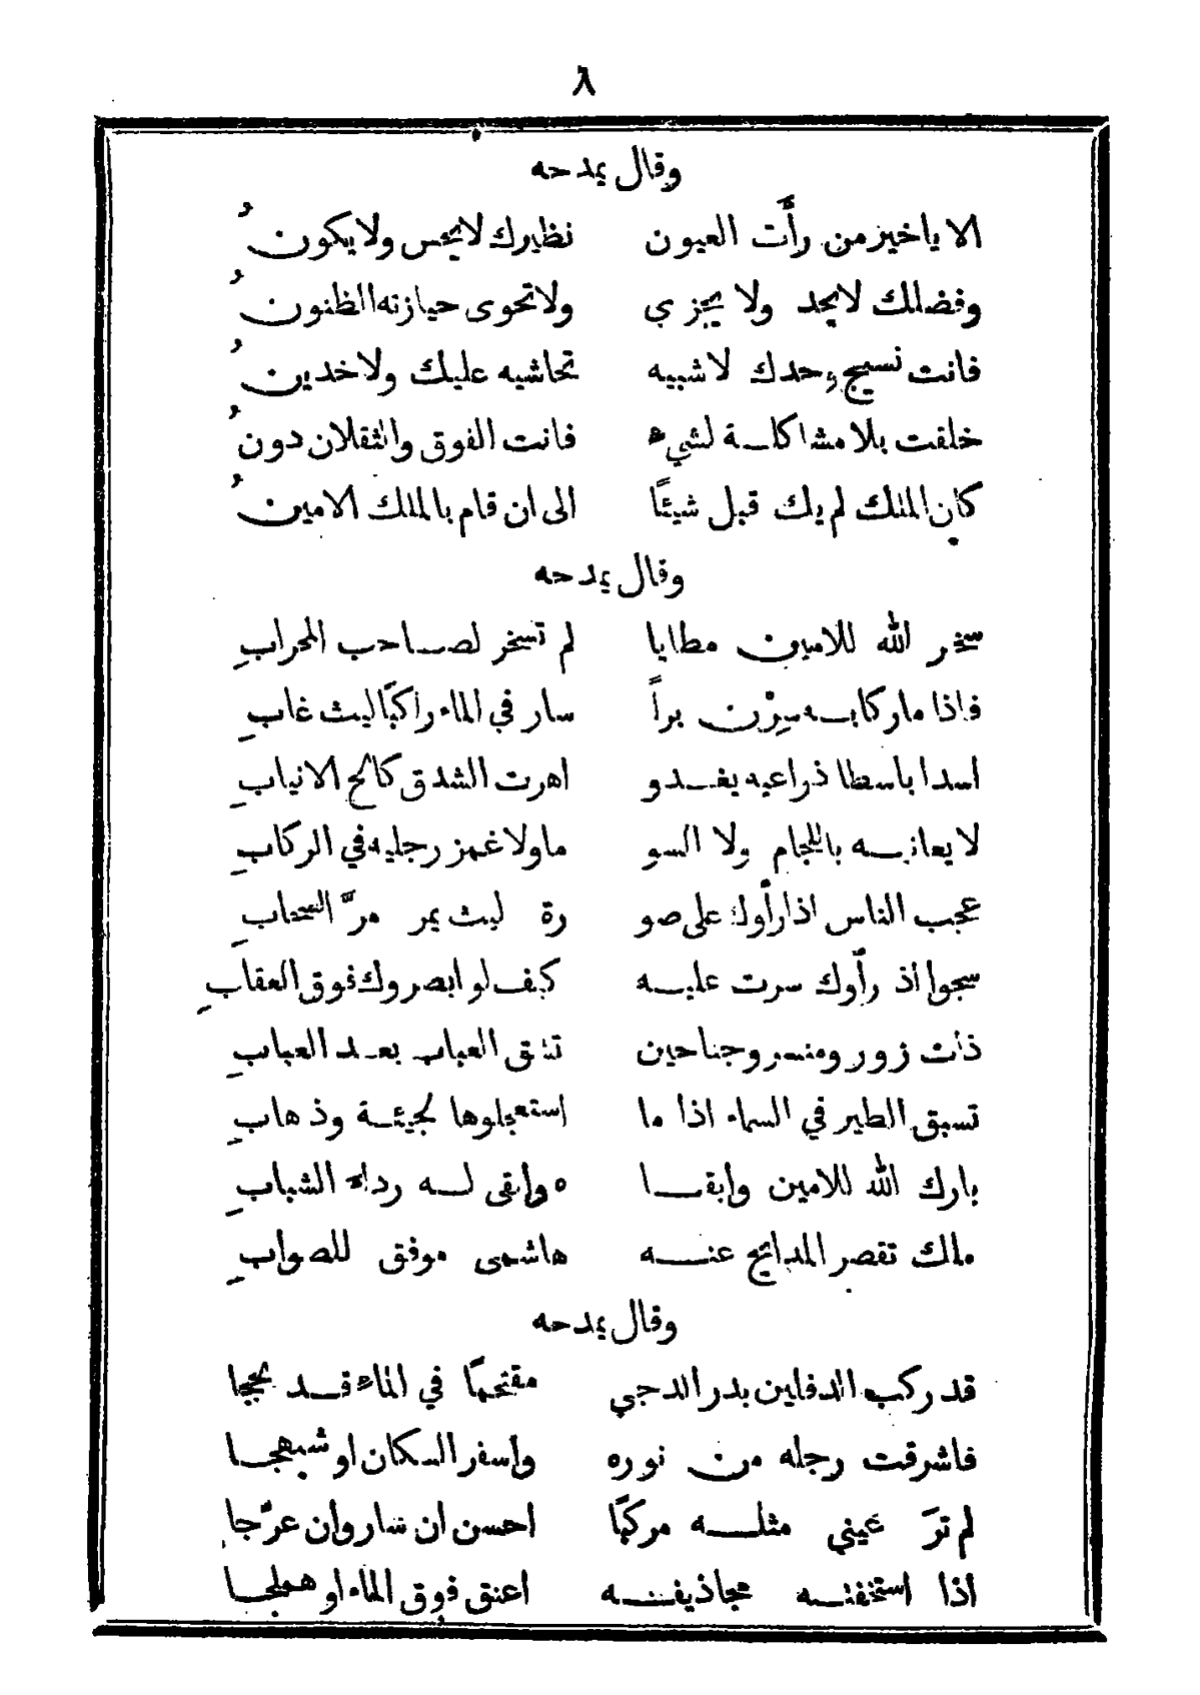 ٨
وقال يمدحه
الا ياخير من رأت العيون نظيرك لا يحس ولا يكونُ
وفضلك لا يحد ولا يجزي ولا تحوى حيازته الظنونُ
فانت نسيج وحدك لا شبيه تحاشيه عليك ولا خدينُ
خلقت بلا مشاكلة لشيء فانت الفوق والثقلان دونُ
كان الملك لم يك قبل شيئًا الى ان قام بالملك الامينُ
وقال يمدحه
سخر الله للامين مطايا لم تسخر لصاحب المحرابِ
فاذا ما ركابه سِرْن براً سار في الماء راكبًا ليث غابِ
اسدا باسطا ذراعيه يغدو اهرت الشدق كالح الانيابِ
لا يعانيه باللجام ولا السو ما ولا غمز رجليه في الركابِ
عجب الناس اذا رأوك على صو رة ليث يمر مرَّ السحابِ
سبحوا اذ رأوك سرت عليه كيف لو ابصروك فوق العقابِ
ذات زور ومنسر وجناحين تشق العباب بعد العبابِ
تسبق الطير في السماء اذا ما استعجلوها لجيئة وذهابِ
بارك الله للامين وابقا ه وابقى له رداء الشبابِ
ملك تقصر المدايح عنه هاشمى موفق للصوابِ
وقال يمدحه
قد ركب الدفلين بدر الدجي مقتحمًا في الماء قد لججا
فاشرقت رجله من نوره واسفر السكان او شبهجا
لم ترَ عيني مثله مركبًا احسن ان سار وان عرَّجا
اذا استخفته مجاذيفه اعنق فوق الماء او هملجا